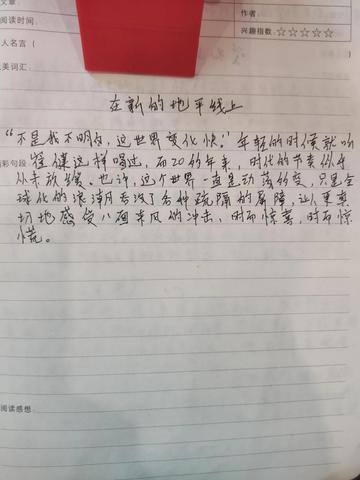 文章
作者:
阅读时间:
兴趣指数:☆☆☆☆☆
人名言(
美词汇:
在新的地平线上
“不是我不明白,这世界变化快。”年轻的时候就听
精彩句段 崔健这样唱过,而20多年来,时代的节奏似乎
从未放缓。也许,这个世界一直是动荡的变,只是全
球化的浪潮月去没了各种疏隔的屏障,让人更真
切地感受八面来风的冲击,时而惊喜,时而惊
慌。
阅读感想: